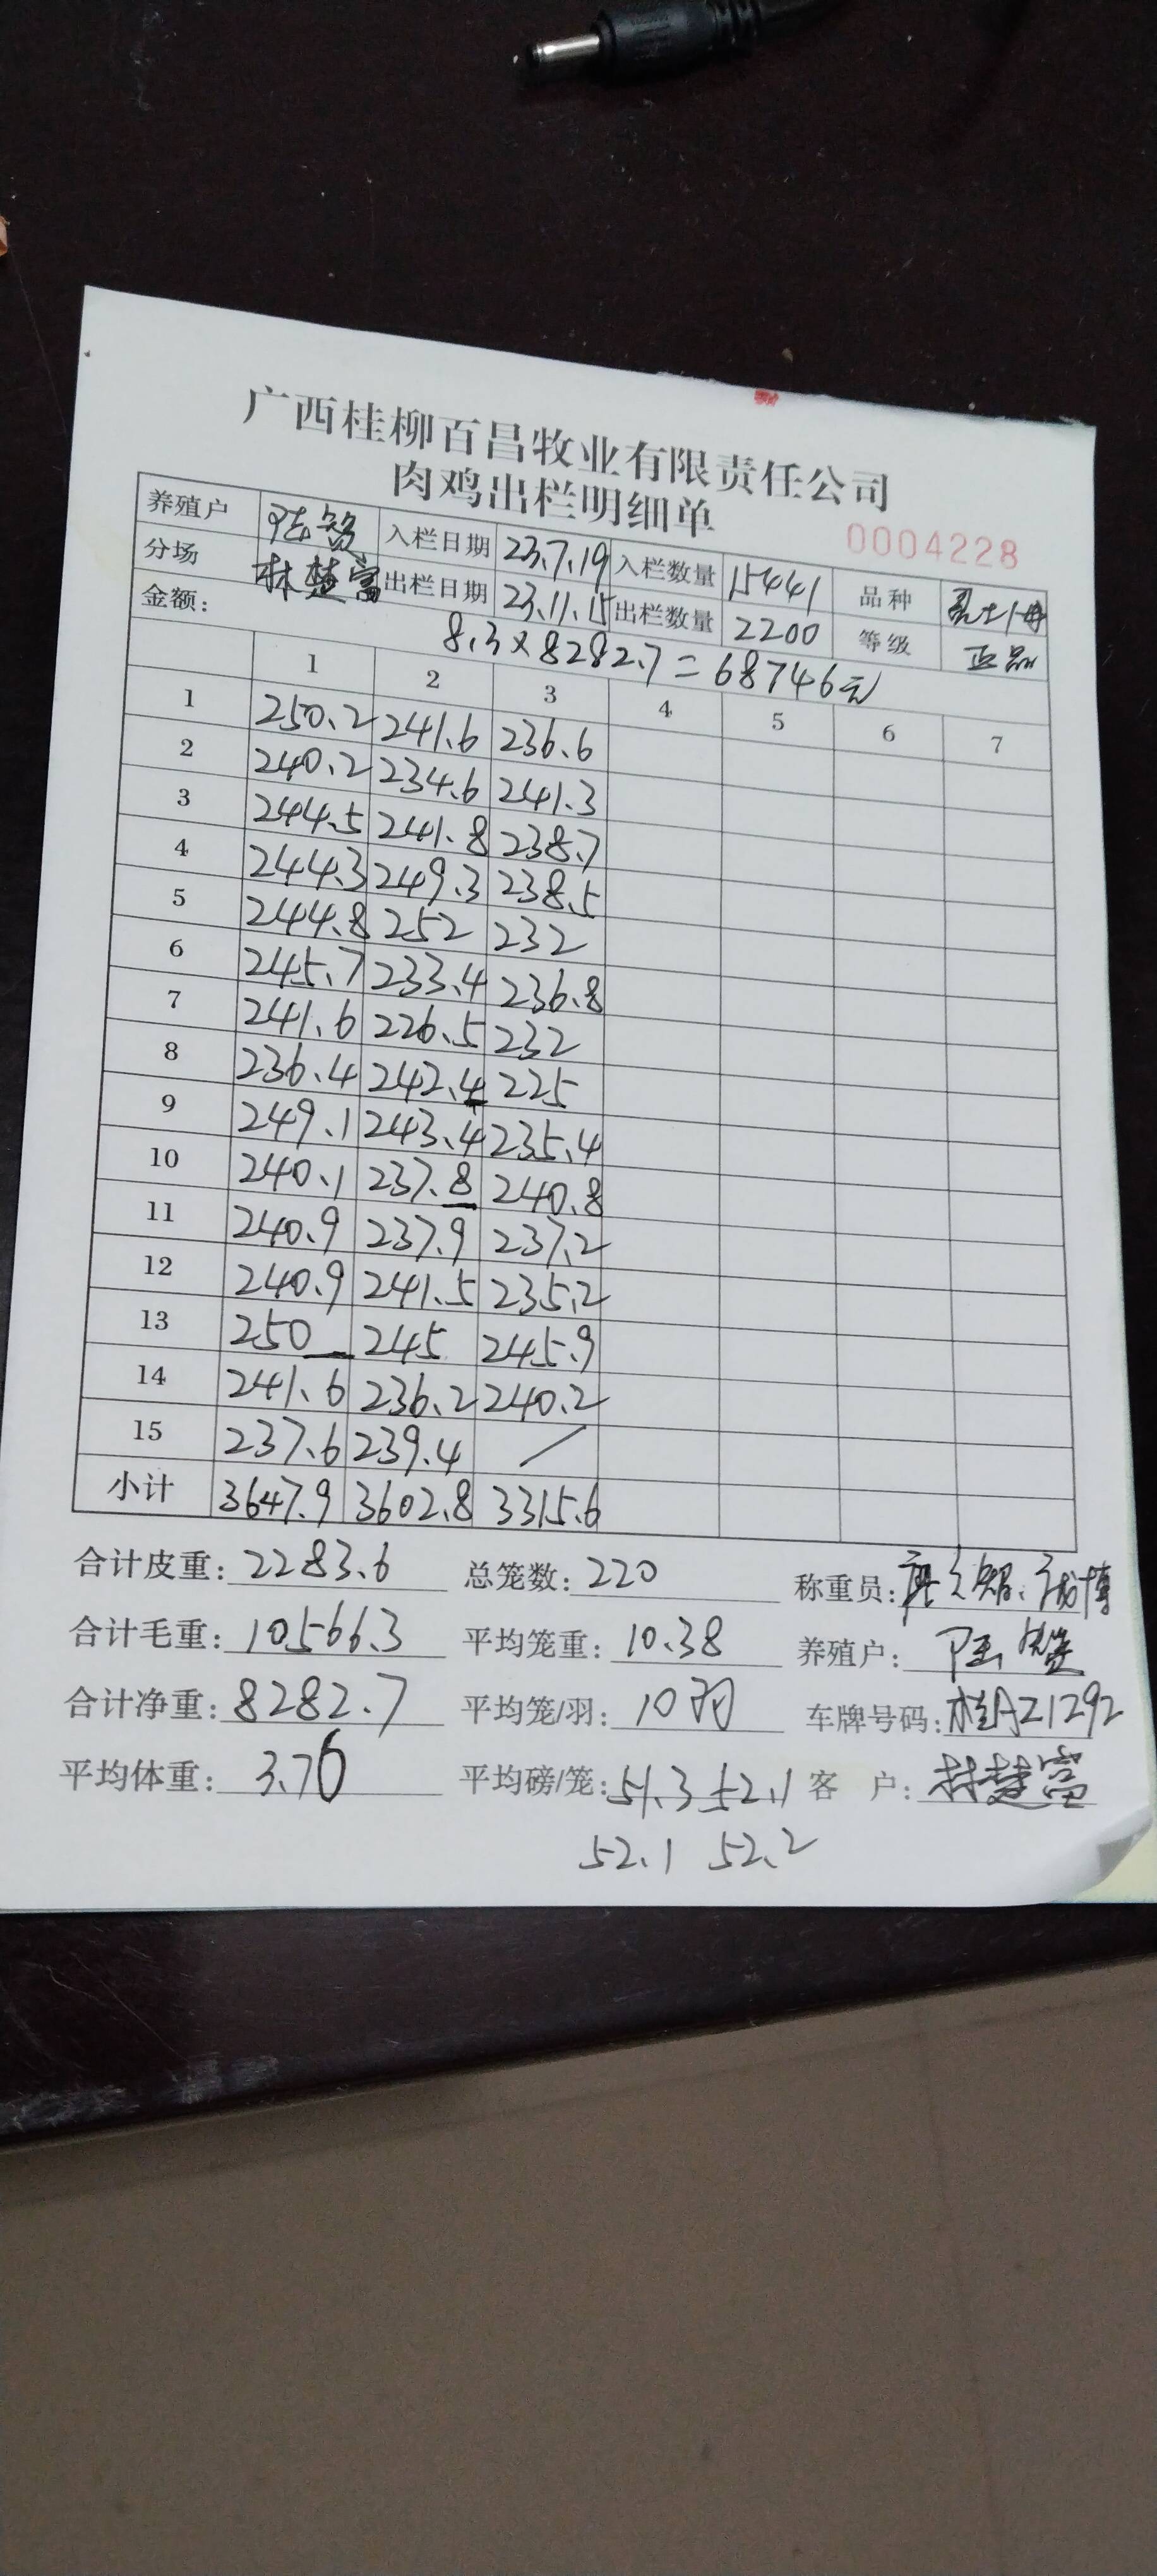 广西桂柳百昌牧业有限责任公司
肉鸡出栏明细单
0004228
养殖户 入栏日期 23.7.19 入栏数量 15441 品种
分场 林楚富 出栏日期 23.11.15 出栏数量 2200 等级 正品
金额: 8.3×8282.7=68746元
1 2 3 4 5 6 7
1 250.2 241.6 236.6
2 240.2 234.6 241.3
3 244.5 241.8 238.7
4 244.3 249.3 238.5
5 244.8 252 232
6 245.7 233.4 236.8
7 241.6 226.5 232
8 236.4 242.4 225
9 249.1 243.4 235.4
10 240.1 237.8 240.8
11 240.9 237.9 237.2
12 240.9 241.5 235.2
13 250 245 245.9
14 241.6 236.2 240.2
15 237.6 239.4 /
小计 3647.9 3602.8 3315.6
合计皮重: 2283.6 总笼数: 220 称重员:
合计毛重: 10566.3 平均笼重: 10.38 养殖户:
合计净重: 8282.7 平均笼/羽: 10羽 车牌号码: 桂AZ1292
平均体重: 3.76 平均磅/笼: 51.3 52.1 客 户: 林楚富
52.1 52.2